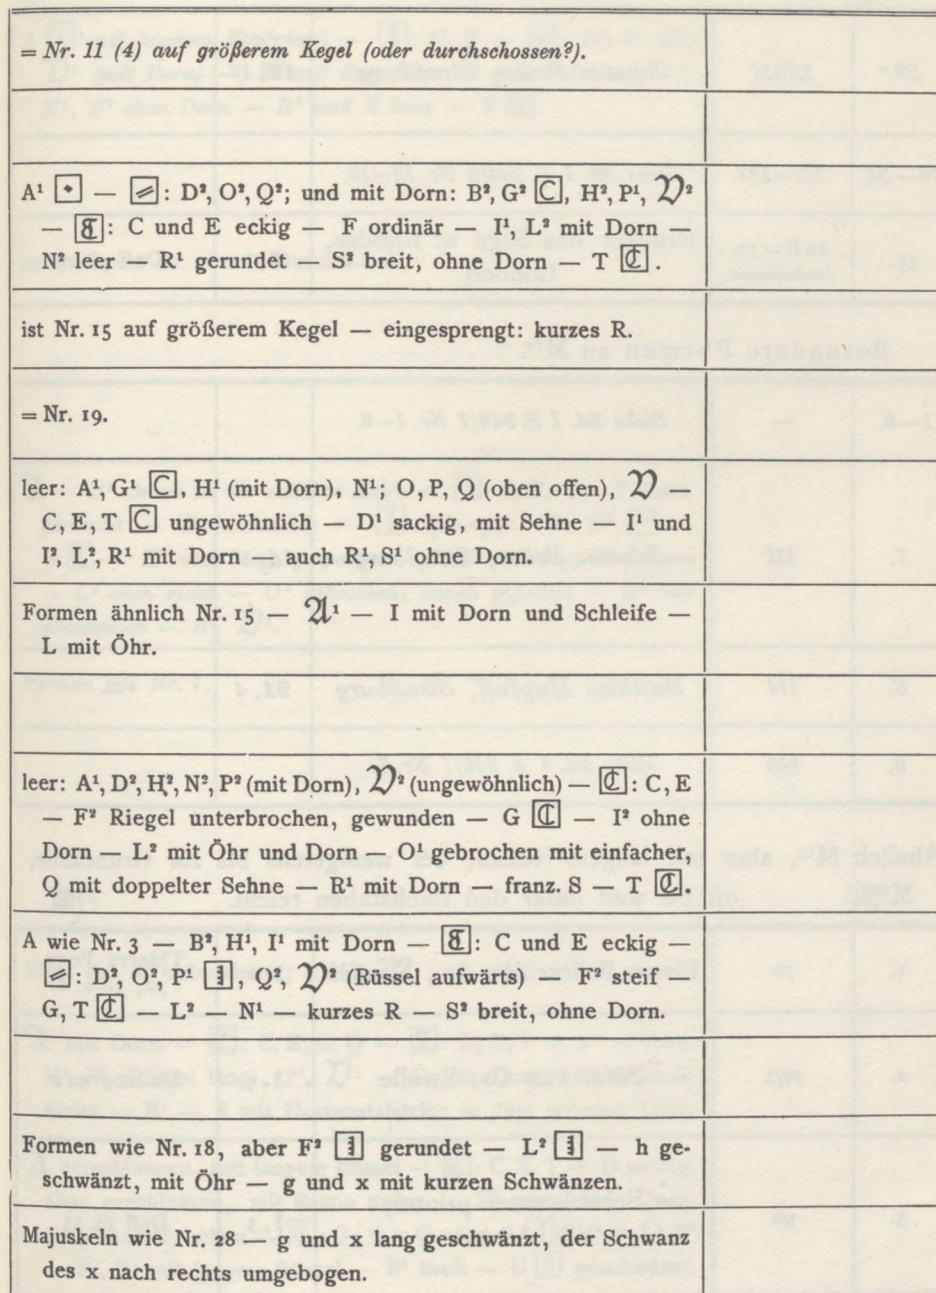 = Nr. 11 (4) auf größerem Kegel (oder durchschossen?).
A¹ — : D², O², Q²; und mit Dorn: B², G² C, H², P¹, V²
— : C und E eckig — F ordinär — I¹, L² mit Dorn —
N² leer — R¹ gerundet — S² breit, ohne Dorn — T .
ist Nr. 15 auf größerem Kegel — eingesprengt: kurzes R.
= Nr. 19.
leer: A¹, G¹ C, H¹ (mit Dorn), N¹; O, P, Q (oben offen), V —
C, E, T C ungewöhnlich — D¹ sackig, mit Sehne — I¹ und
I², L², R¹ mit Dorn — auch R¹, S¹ ohne Dorn.
Formen ähnlich Nr. 15 — A¹ — I mit Dorn und Schleife —
L mit Öhr.
leer: A¹, D², H², N², P² (mit Dorn), V² (ungewöhnlich) — : C, E
— F² Riegel unterbrochen, gewunden — G — I² ohne
Dorn — L² mit Öhr und Dorn — O¹ gebrochen mit einfacher,
Q mit doppelter Sehne — R¹ mit Dorn — franz. S — T .
A wie Nr. 3 — B², H¹, I¹ mit Dorn — : C und E eckig —
: D², O², P¹ , Q², V² (Rüssel aufwärts) — F² steif —
G, T — L² — N¹ — kurzes R — S² breit, ohne Dorn.
Formen wie Nr. 18, aber F² gerundet — L² — h ge-
schwänzt, mit Öhr — g und x mit kurzen Schwänzen.
Majuskeln wie Nr. 28 — g und x lang geschwänzt, der Schwanz
des x nach rechts umgebogen.